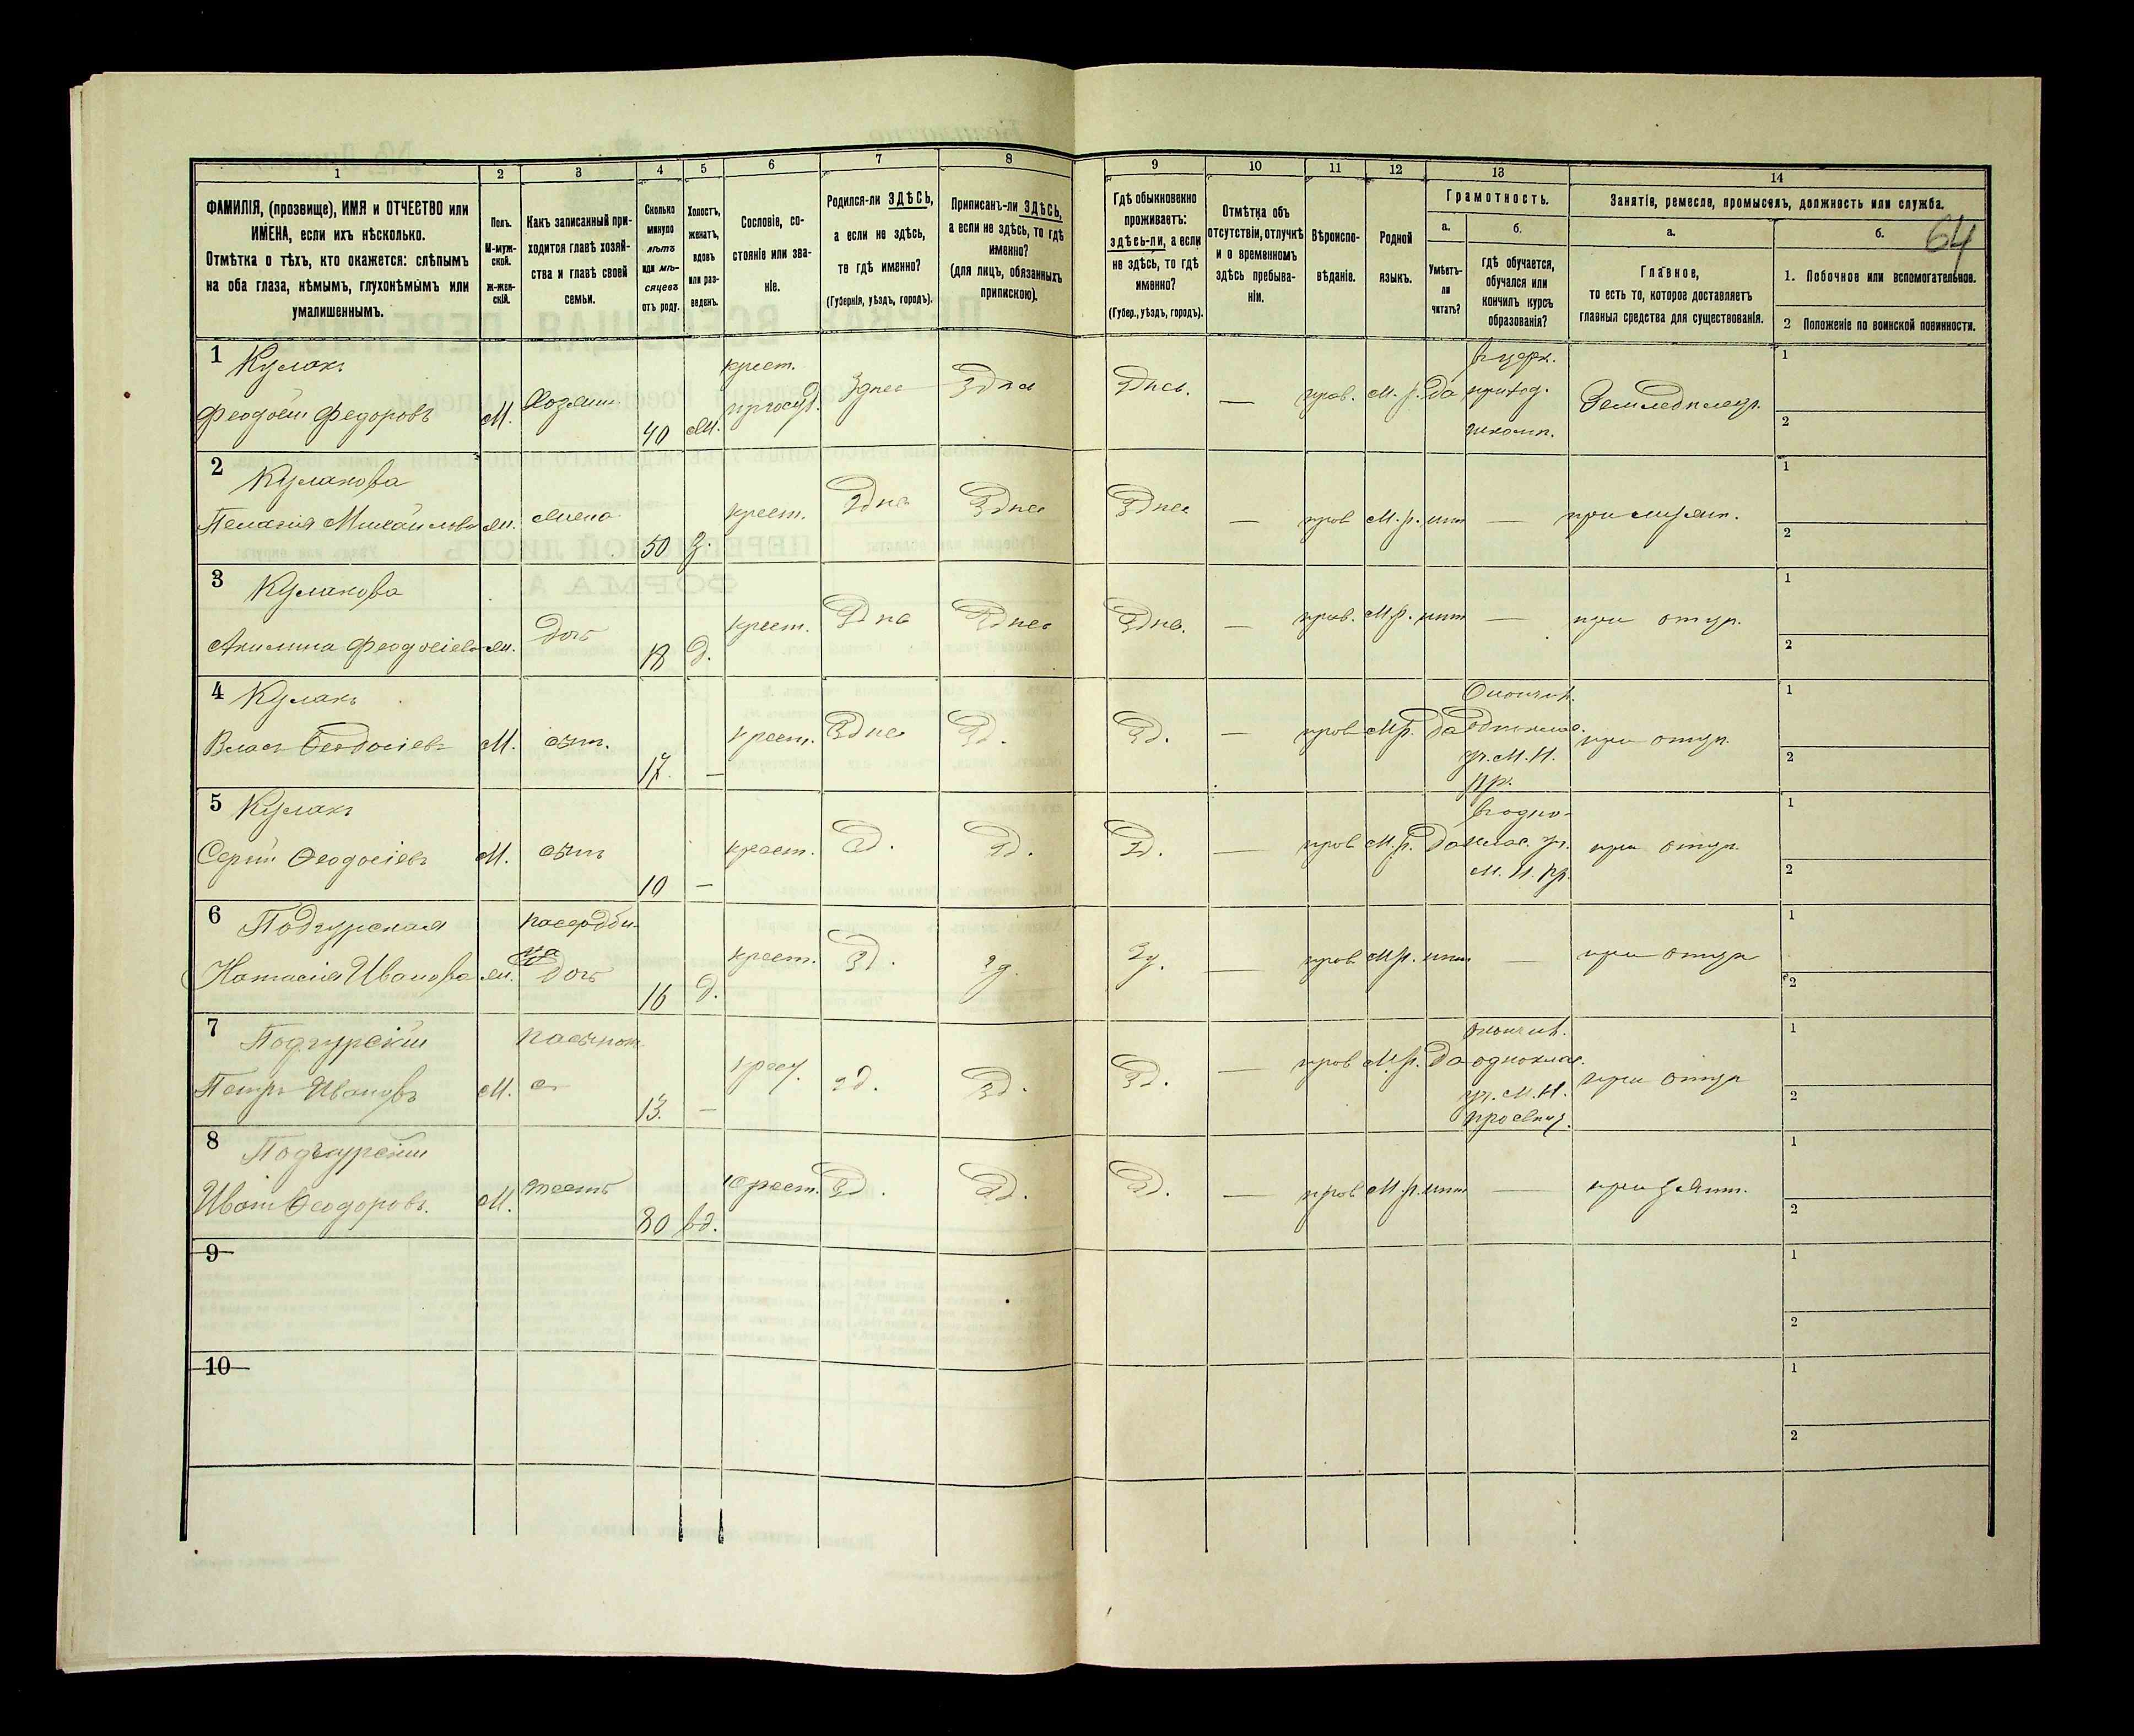 64
1 2 3 4 5 6 7 8 9 10 11 12 13 14
ФАМИЛІЯ, (прозвище), ИМЯ и ОТЧЕСТВО или
ИМЕНА, если ихъ нѣсколько.
Отмѣтка о тѣхъ, кто окажется: слѣпымъ
на оба глаза, нѣмымъ, глухонѣмымъ или
умалишеннымъ.
Полъ.
М-муж-
ской.
ж-жен-
скій.
Какъ записанный при-
ходится главѣ хозяй-
ства и главѣ своей
семьи.
Сколько
минуло
лѣтъ
или мѣ-
сяцевъ
отъ роду.
Холостъ,
женатъ,
вдовъ
или раз-
веденъ.
Сословіе, со-
стояніе или зва-
ніе.
Родился-ли ЗДѢСЬ,
а если не здѣсь,
то гдѣ именно?
(Губернія, уѣздъ, городъ).
Приписанъ-ли ЗДѢСЬ,
а если не здѣсь, то гдѣ
именно?
(для лицъ, обязанныхъ
припискою).
Гдѣ обыкновенно
проживаетъ:
здѣсь-ли, а если
не здѣсь, то гдѣ
именно?
(Губер., уѣздъ, городъ).
Отмѣтка объ
отсутствіи, отлучкѣ
и о временномъ
здѣсь пребыва-
ніи.
Вѣроиспо-
вѣданіе.
Родной
языкъ.
Грамотность.
а.
Умѣетъ-
ли
читать?
б.
гдѣ обучается,
обучался или
кончилъ курсъ
образованія?
Занятія, ремесло, промыселъ, должность или служба.
а.
Главное,
то есть то, которое доставляетъ
главныя средства для существованія.
б.
1. Побочное или вспомогательное.
2 Положеніе по воинской повинности.
1 Кулакъ
Феодосій Федоровъ М. Хозяинъ 40 крест. Здѣсь Здѣсь Здѣсь. — прав. М. р. да приход. 1
2
2 Кулакова
Пелагія Михайлова жена 50 крест. Здѣсь Здѣсь Здѣсь — прав М. р. нѣтъ — 1
2
3 Кулакова
Акилина Феодосіева дочь 18 д. крест. Здѣсь Здѣсь Здѣсь. — прав. М. р. нѣтъ — при отцѣ. 1
2
4 Кулакъ
Власъ Ѳеодосіевъ М. сынъ. 17. — крест. Здѣсь Зд. Зд. — прав М р. да Окончив. одноклас. уч. М. Н. Пр. при отцѣ. 1
2
5 Кулакъ
Сергій Ѳеодосіевъ М. сынъ 10 — крест. Зд. Зд. Зд. — прав М. р. да въ одно-клас. уч. М. Н. Пр. при отцѣ. 1
2
6 Подгурская
Иванова дочь 16 д. крест. Зд. Зд. Зд. — прав М р. нѣтъ — при отцѣ 1
2
7 Подгурскій
Петръ Ивановъ М. пасынок 13. — Зд. Зд. Зд. — прав М. р. да окончив. одноклас. уч. М. Н. Просвѣщ. при отцѣ 1
2
8 Подгурскій
Иванъ Ѳеодоровъ. М. тесть 80 вд. Крест. Зд. Зд. Зд. — прав М. р. нѣтъ — при зятѣ. 1
2
9 1
2
10 1
2